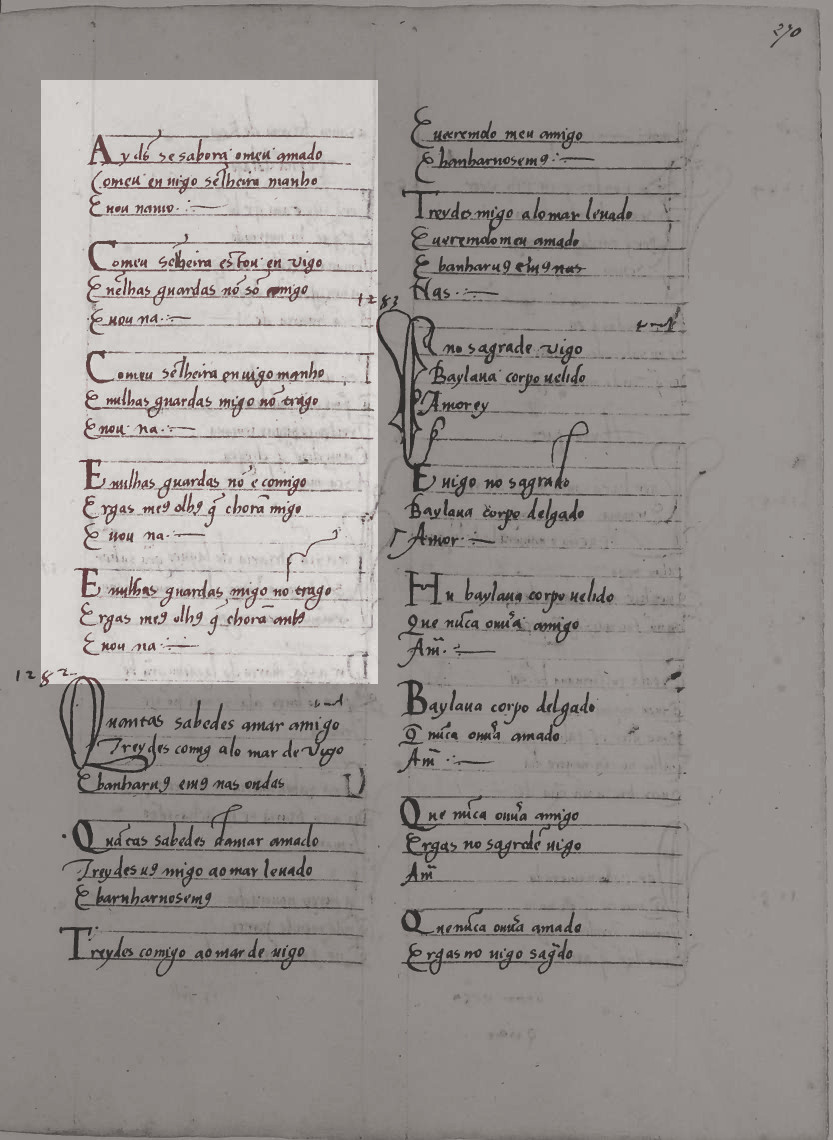 270
Ay ds̃ se sabora omeu amado
Comeu en uigo sẽlheira manho
E uou namo
Comeu sẽlheira estou en vigo
E nẽlhas guardas nõ sõ migo
E uou na
Comeu sẽlheira en uigo manho
E nulhas guardas migo nõ trago
E uou na
E nulhas guardas nõ e comigo
Ergas me9 olh9 q̃ chorã migo
E uou na
E nulhas guardas migo no trago
Ergas me9 olh9 q̃ chorã anb9
E uou na
1282
Quantas sabedes amar amigo
Treydes comig alo mar de vigo
E banharu9 em9 nas ondas
Quãtas sabedes damar amado
Treydes u9 migo ao mar leuado
E barnharnosem9
Treydes comigo ao mar de uigo
E ueeremolo meu amigo
E banharnosem9
Treydes migo alo mar leuado
E ueremolo meu amado
E banharu9 em9 nas
Nas
1283
no sagrade vigo
Baylaua corpo uelido
Amorey
E uigo no sagrado
Baylaua corpo delgado
Amor
Hu baylaua corpo uelido
Que nũca ouu'a amigo
Am̃
Baylaua corpo delgado
Q̃ nũca ouu'a amado
Am̃
Que nũca ouu'a amigo
Ergas no sagradẽ uigo
Am̃
Que nũca ouu'a amado
Ergas no uigo sag'do